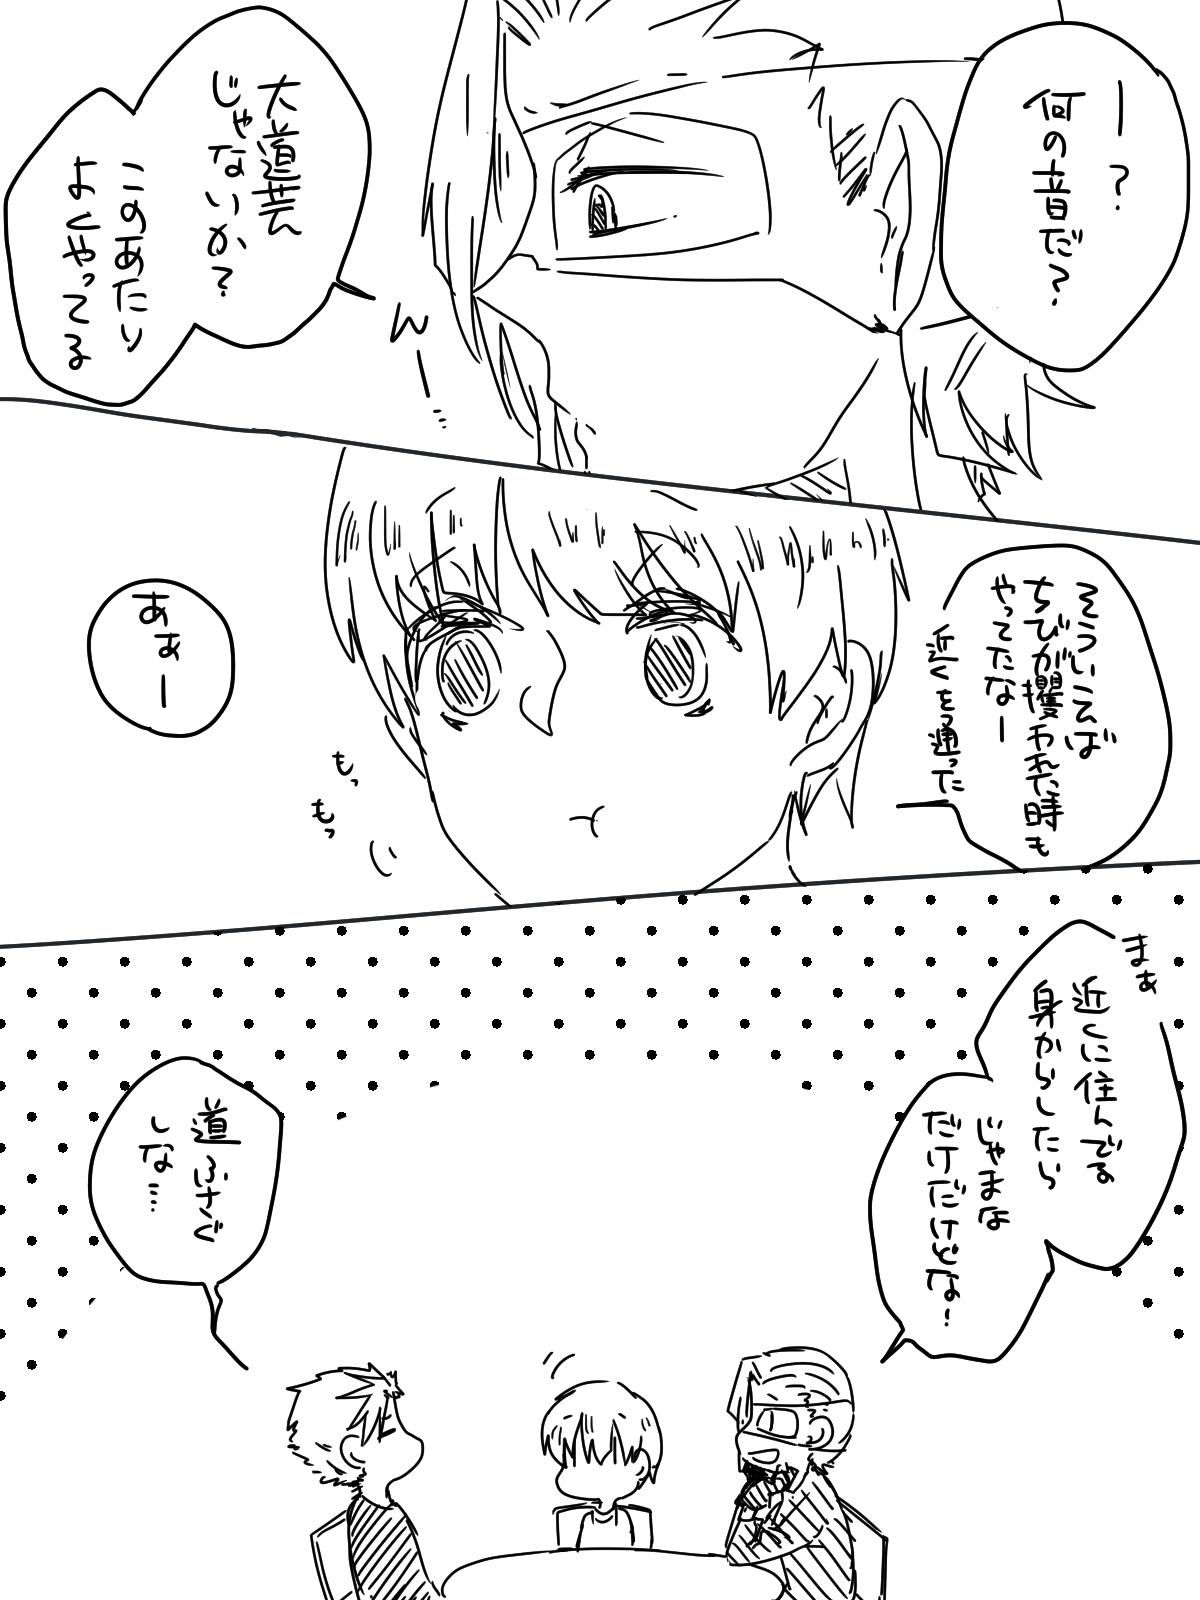 ー?
何の音だ?
大道芸
じゃないか?
このあたり
よくやってる
んー…
そういえば
ちびが攫われた時も
やってたなー
近くを通った
あぁー
もっ
もっ
まぁ
近くに住んでる
身からしたら
じゃまな
だけだけどな!
道ふさぐ
しな…